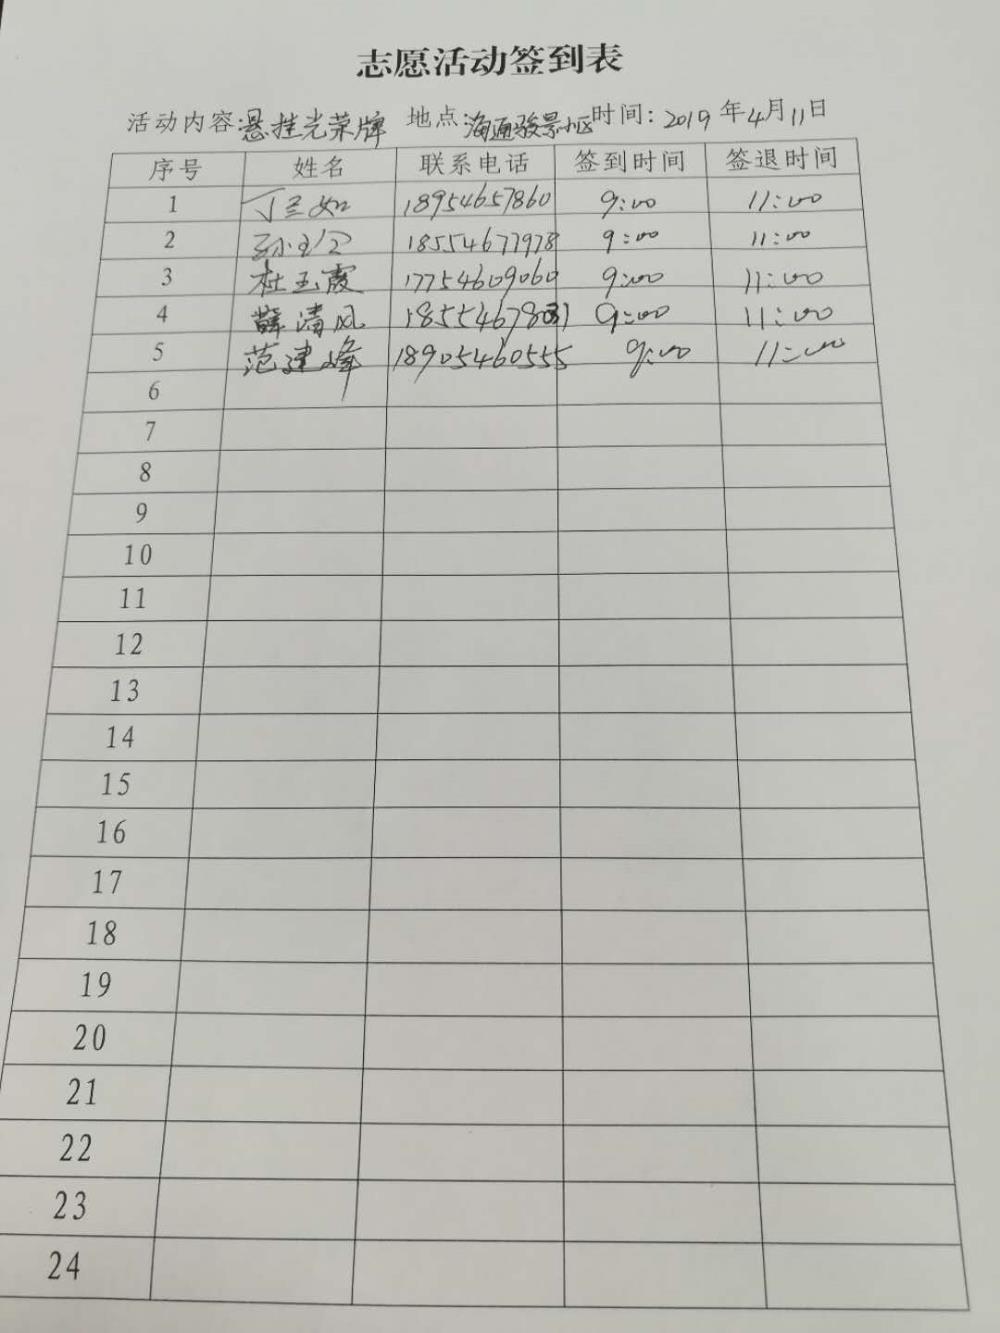 志愿活动签到表
活动内容:悬挂光荣牌 地点:海通骏景小区 时间: 2019年4月11日
序号 姓名 联系电话 签到时间 签退时间
1 丁兰如 18954657860 9:00 11:00
2 18554677978 9:00 11:00
3 杜玉霞 17754609060 9:00 11:00
4 薛清风 9:00 11:00
5 范建峰 18905460555 9:00 11:00
6
7
8
9
10
11
12
13
14
15
16
17
18
19
20
21
22
23
24